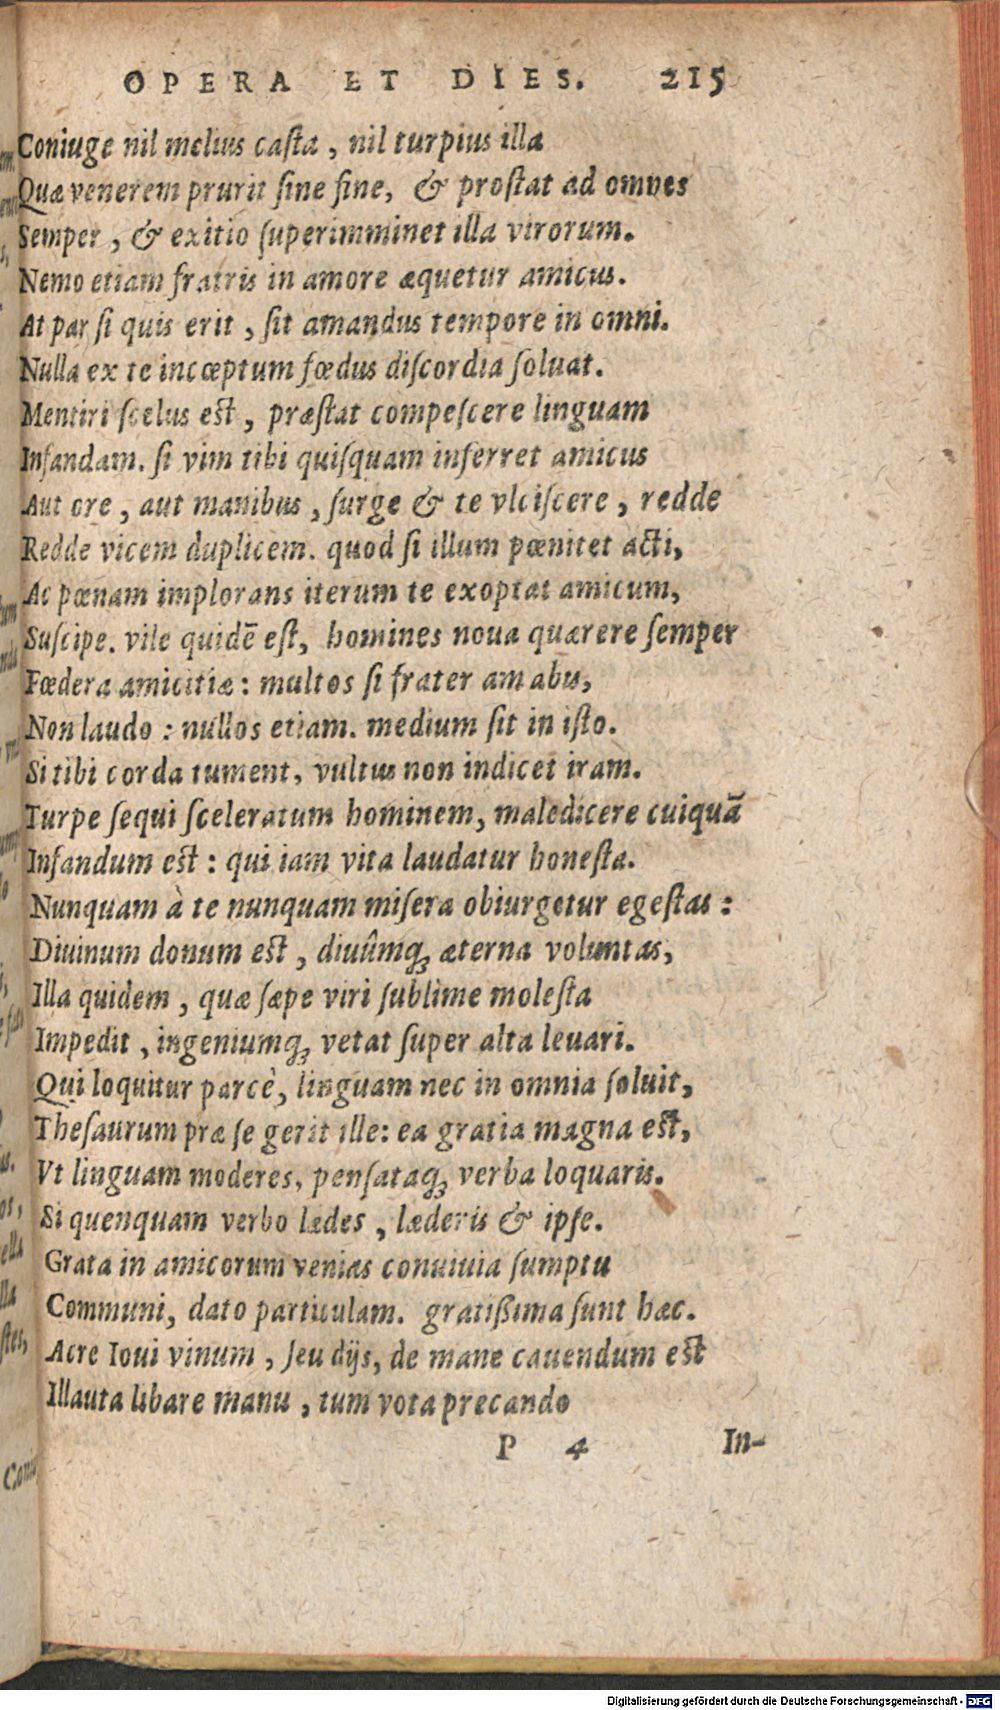 OPERA ET DIES. 215
Coniuge nil melius casta, nil turpius illa
Quæ venerem prurit sine fine, & prostat ad omnes
Semper, & exitio superimminet illa virorum.
Nemo etiam fratris in amore æquetur amicus.
At par si quis erit, sit amandus tempore in omni.
Nulla ex te incœptum fœdus discordia soluat.
Mentiri scelus est, præstat compescere linguam
Infandam. si vim tibi quisquam inferret amicus
Aut ore, aut manibus, surge & te vlciscere, redde
Redde vicem duplicem. quod si illum pœnitet acti,
Ac pœnam implorans iterum te exoptat amicum,
Suscipe. vile quidē est, homines noua quærere semper
Fœdera amicitiæ: multos si frater amabis,
Non laudo: nullos etiam. medium sit in isto.
Si tibi corda tument, vultus non indicet iram.
Turpe sequi sceleratum hominem, maledicere cuiquã
Infandum est: qui iam vita laudatur honesta.
Nunquam à te nunquam misera obiurgetur egestas:
Diuinum donum est, diuûmq; æterna voluntas,
Illa quidem, quæ sæpe viri sublime molesta
Impedit, ingeniumq; vetat super alta leuari.
Qui loquitur parcè, linguam nec in omnia soluit,
Thesaurum præ se gerit ille: ea gratia magna est,
Vt linguam moderes, pensataq; verba loquaris.
Si quenquam verbo lædes, læderis & ipse.
Grata in amicorum venias conuiuia sumptu
Communi, dato particulam. gratißima sunt hæc.
Acre Ioui vinum, seu dijs, de mane cauendum est
Illauta libare manu, tum vota precando
P 4 In-
Digitalisierung gefördert durch die Deutsche Forschungsgemeinschaft - DFG